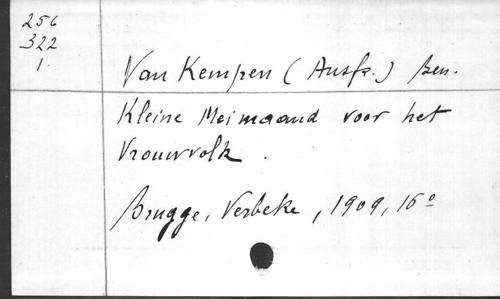 256
322
1.
Van Kempen (Ausfr.) Ben.
Kleine Meimaand voor het
Vrouwvolk.
Brugge, Verbeke, 1909, 16°